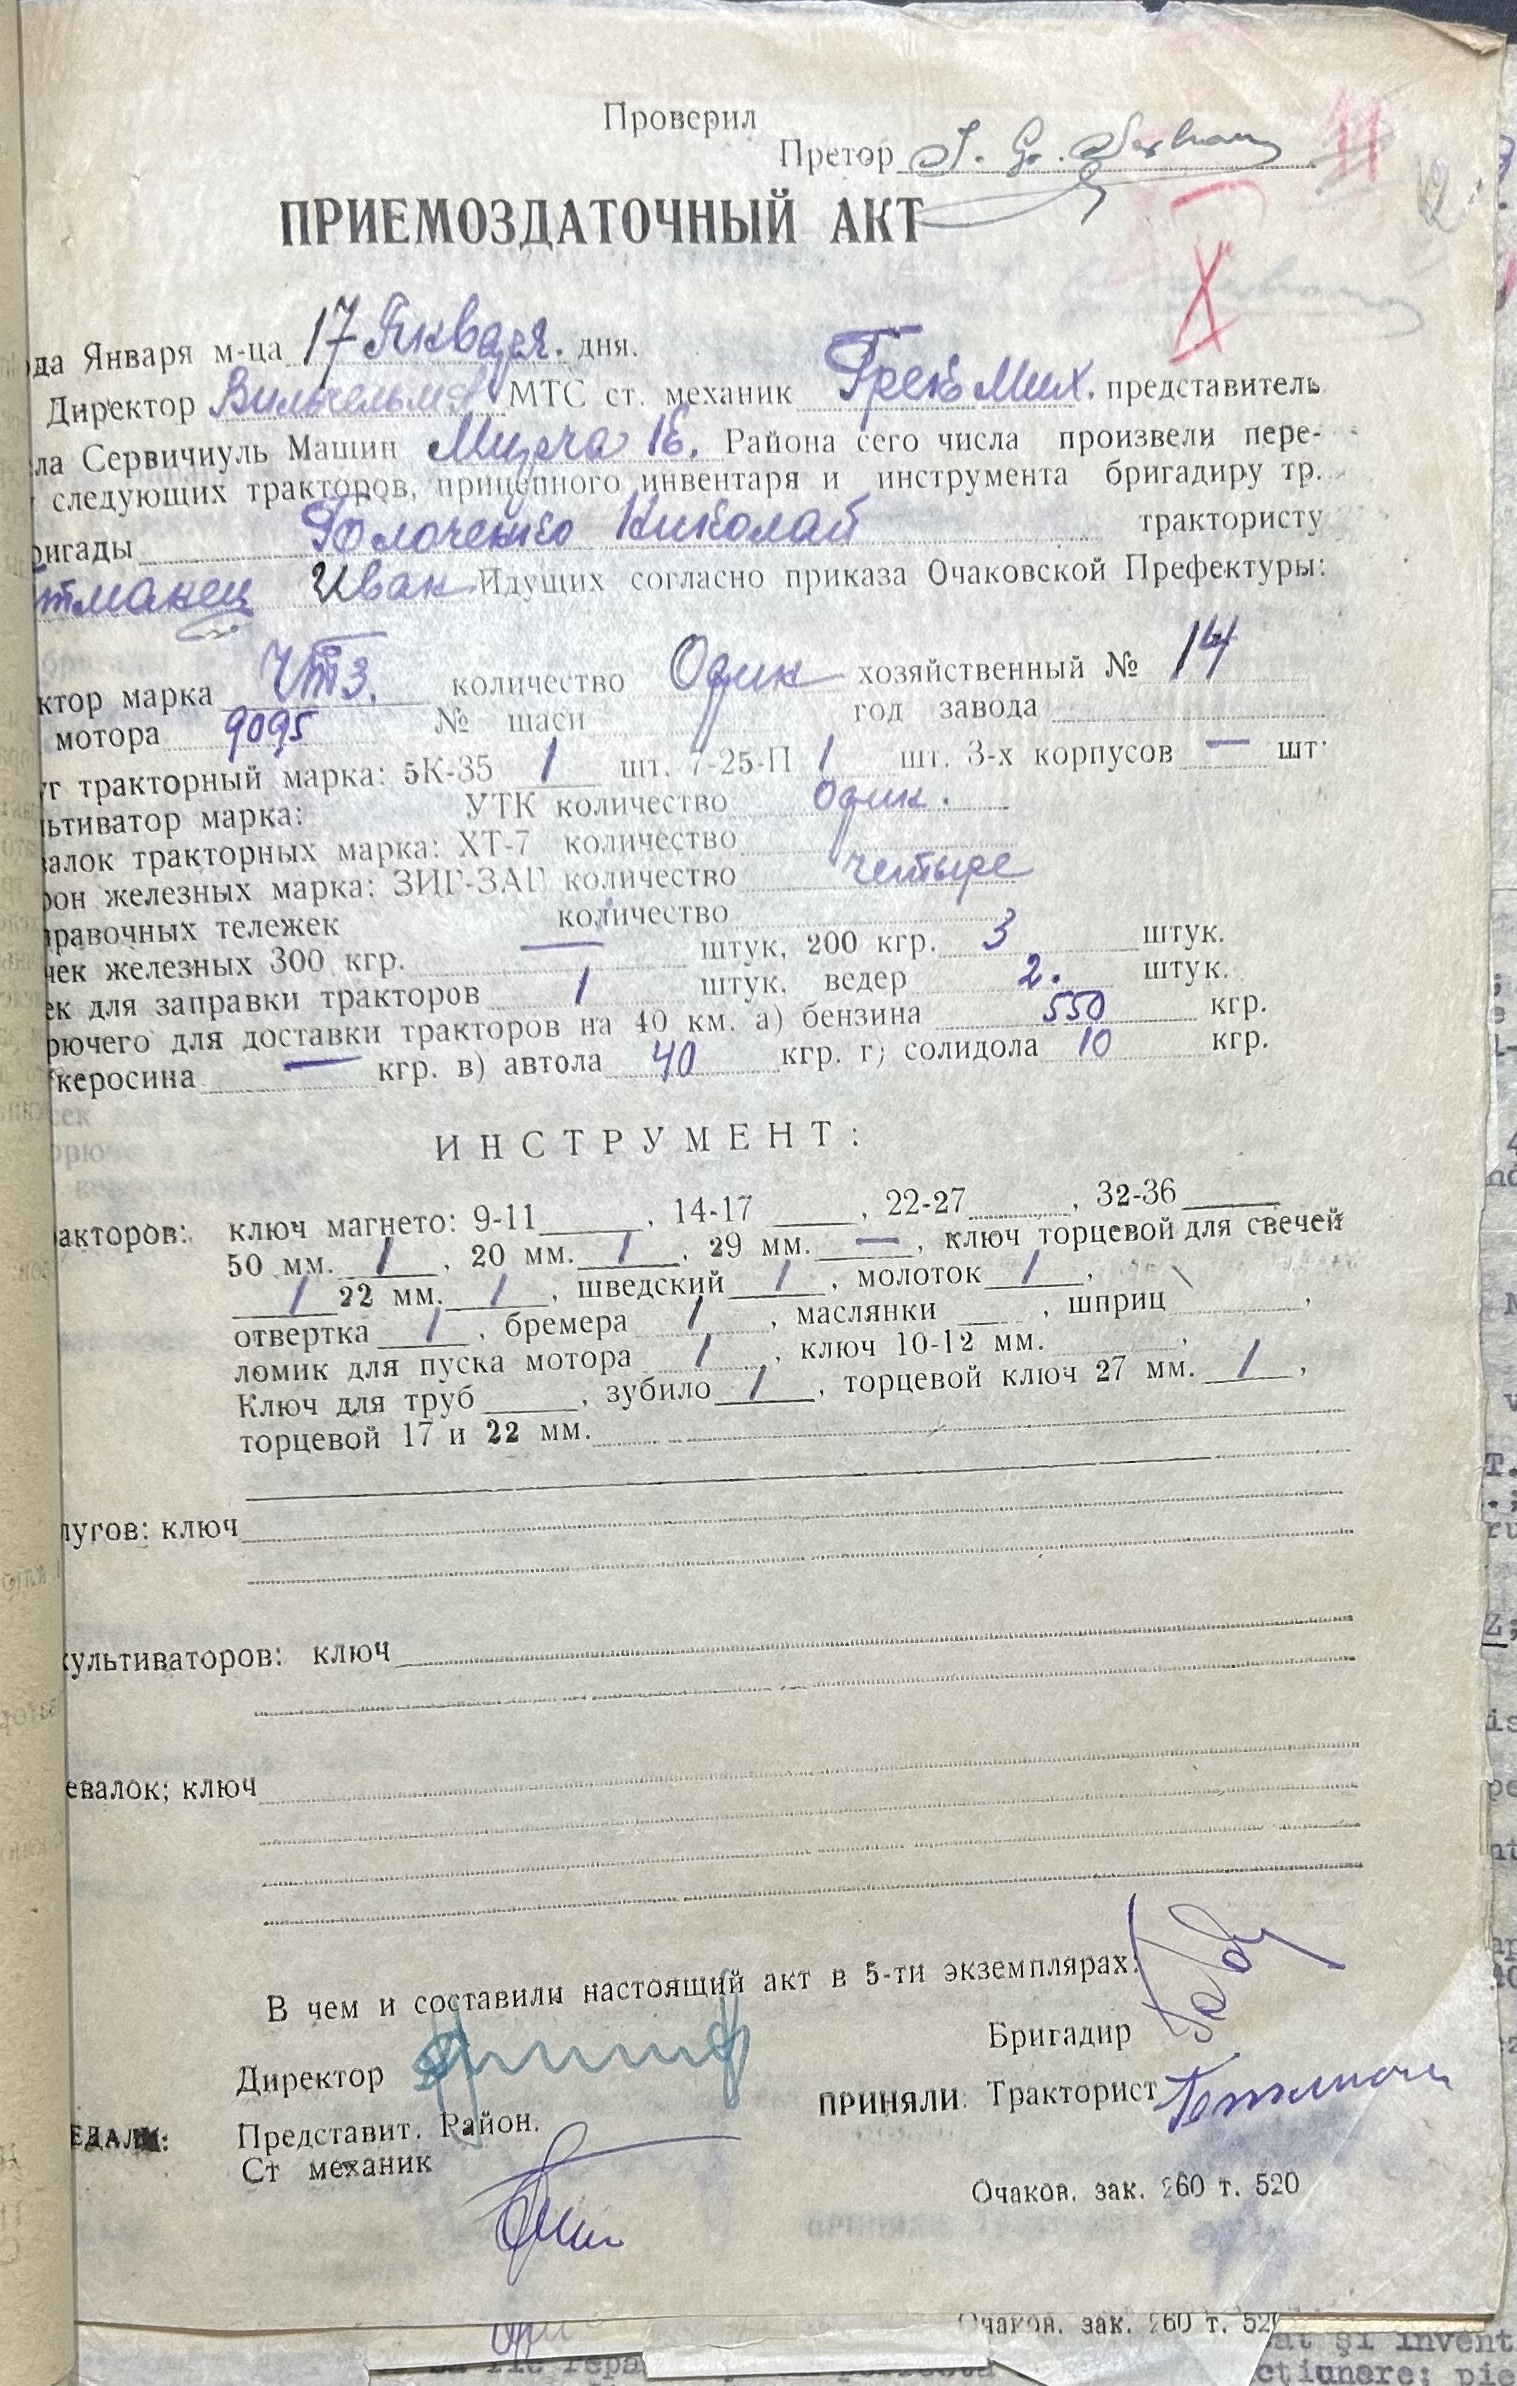 Проверил
Претор
11
ПРИЕМОЗДАТОЧНЫЙ АКТ
X
ода Января м-ца 17 Января. дня.
Директор МТС ст. механик Грек Мих. представитель
ла Сервичиуль Машин Района сего числа произвели пере-
следующих тракторов, прицепного инвентаря и инструмента бригадиру тр.
ригады Николай трактористу
тманец Иван Идущих согласно приказа Очаковской Префектуры:
ктор марка ЧТЗ. количество Один хозяйственный № 14
мотора 9095 № шаси год завода
уг тракторный марка: 5К-35 1 шт. 7-25-П 1 шт. 3-х корпусов — шт.
льтиватор марка: УТК количество Один.
валок тракторных марка: ХТ-7 количество
рон железных марка: ЗИГ-ЗАГ количество четыре
правочных тележек количество
чек железных 300 кгр. — штук, 200 кгр. 3 штук.
ек для заправки тракторов 1 штук, ведер 2. штук.
рючего для доставки тракторов на 40 км. а) бензина 550 кгр.
керосина — кгр. в) автола 40 кгр. г) солидола 10 кгр.
ИНСТРУМЕНТ:
акторов: ключ магнето: 9-11 , 14-17 , 22-27 , 32-36
50 мм. 1 , 20 мм. 1 , 29 мм. — , ключ торцевой для свечей
1 22 мм. 1 , шведский 1 , молоток 1 ,
отвертка 1 , бремера 1 , маслянки , шприц ,
ломик для пуска мотора 1 , ключ 10-12 мм. ,
Ключ для труб , зубило 1 , торцевой ключ 27 мм. 1 ,
торцевой 17 и 22 мм.
лугов: ключ
культиваторов: ключ
евалок; ключ
В чем и составили настоящий акт в 5-ти экземплярах:
Бригадир
Директор
ПРИНЯЛИ: Тракторист
ЕДАЛИ: Представит. Район.
Ст механик
Очаков. зак. 260 т. 520
Очаков. зак. 260 т. 520